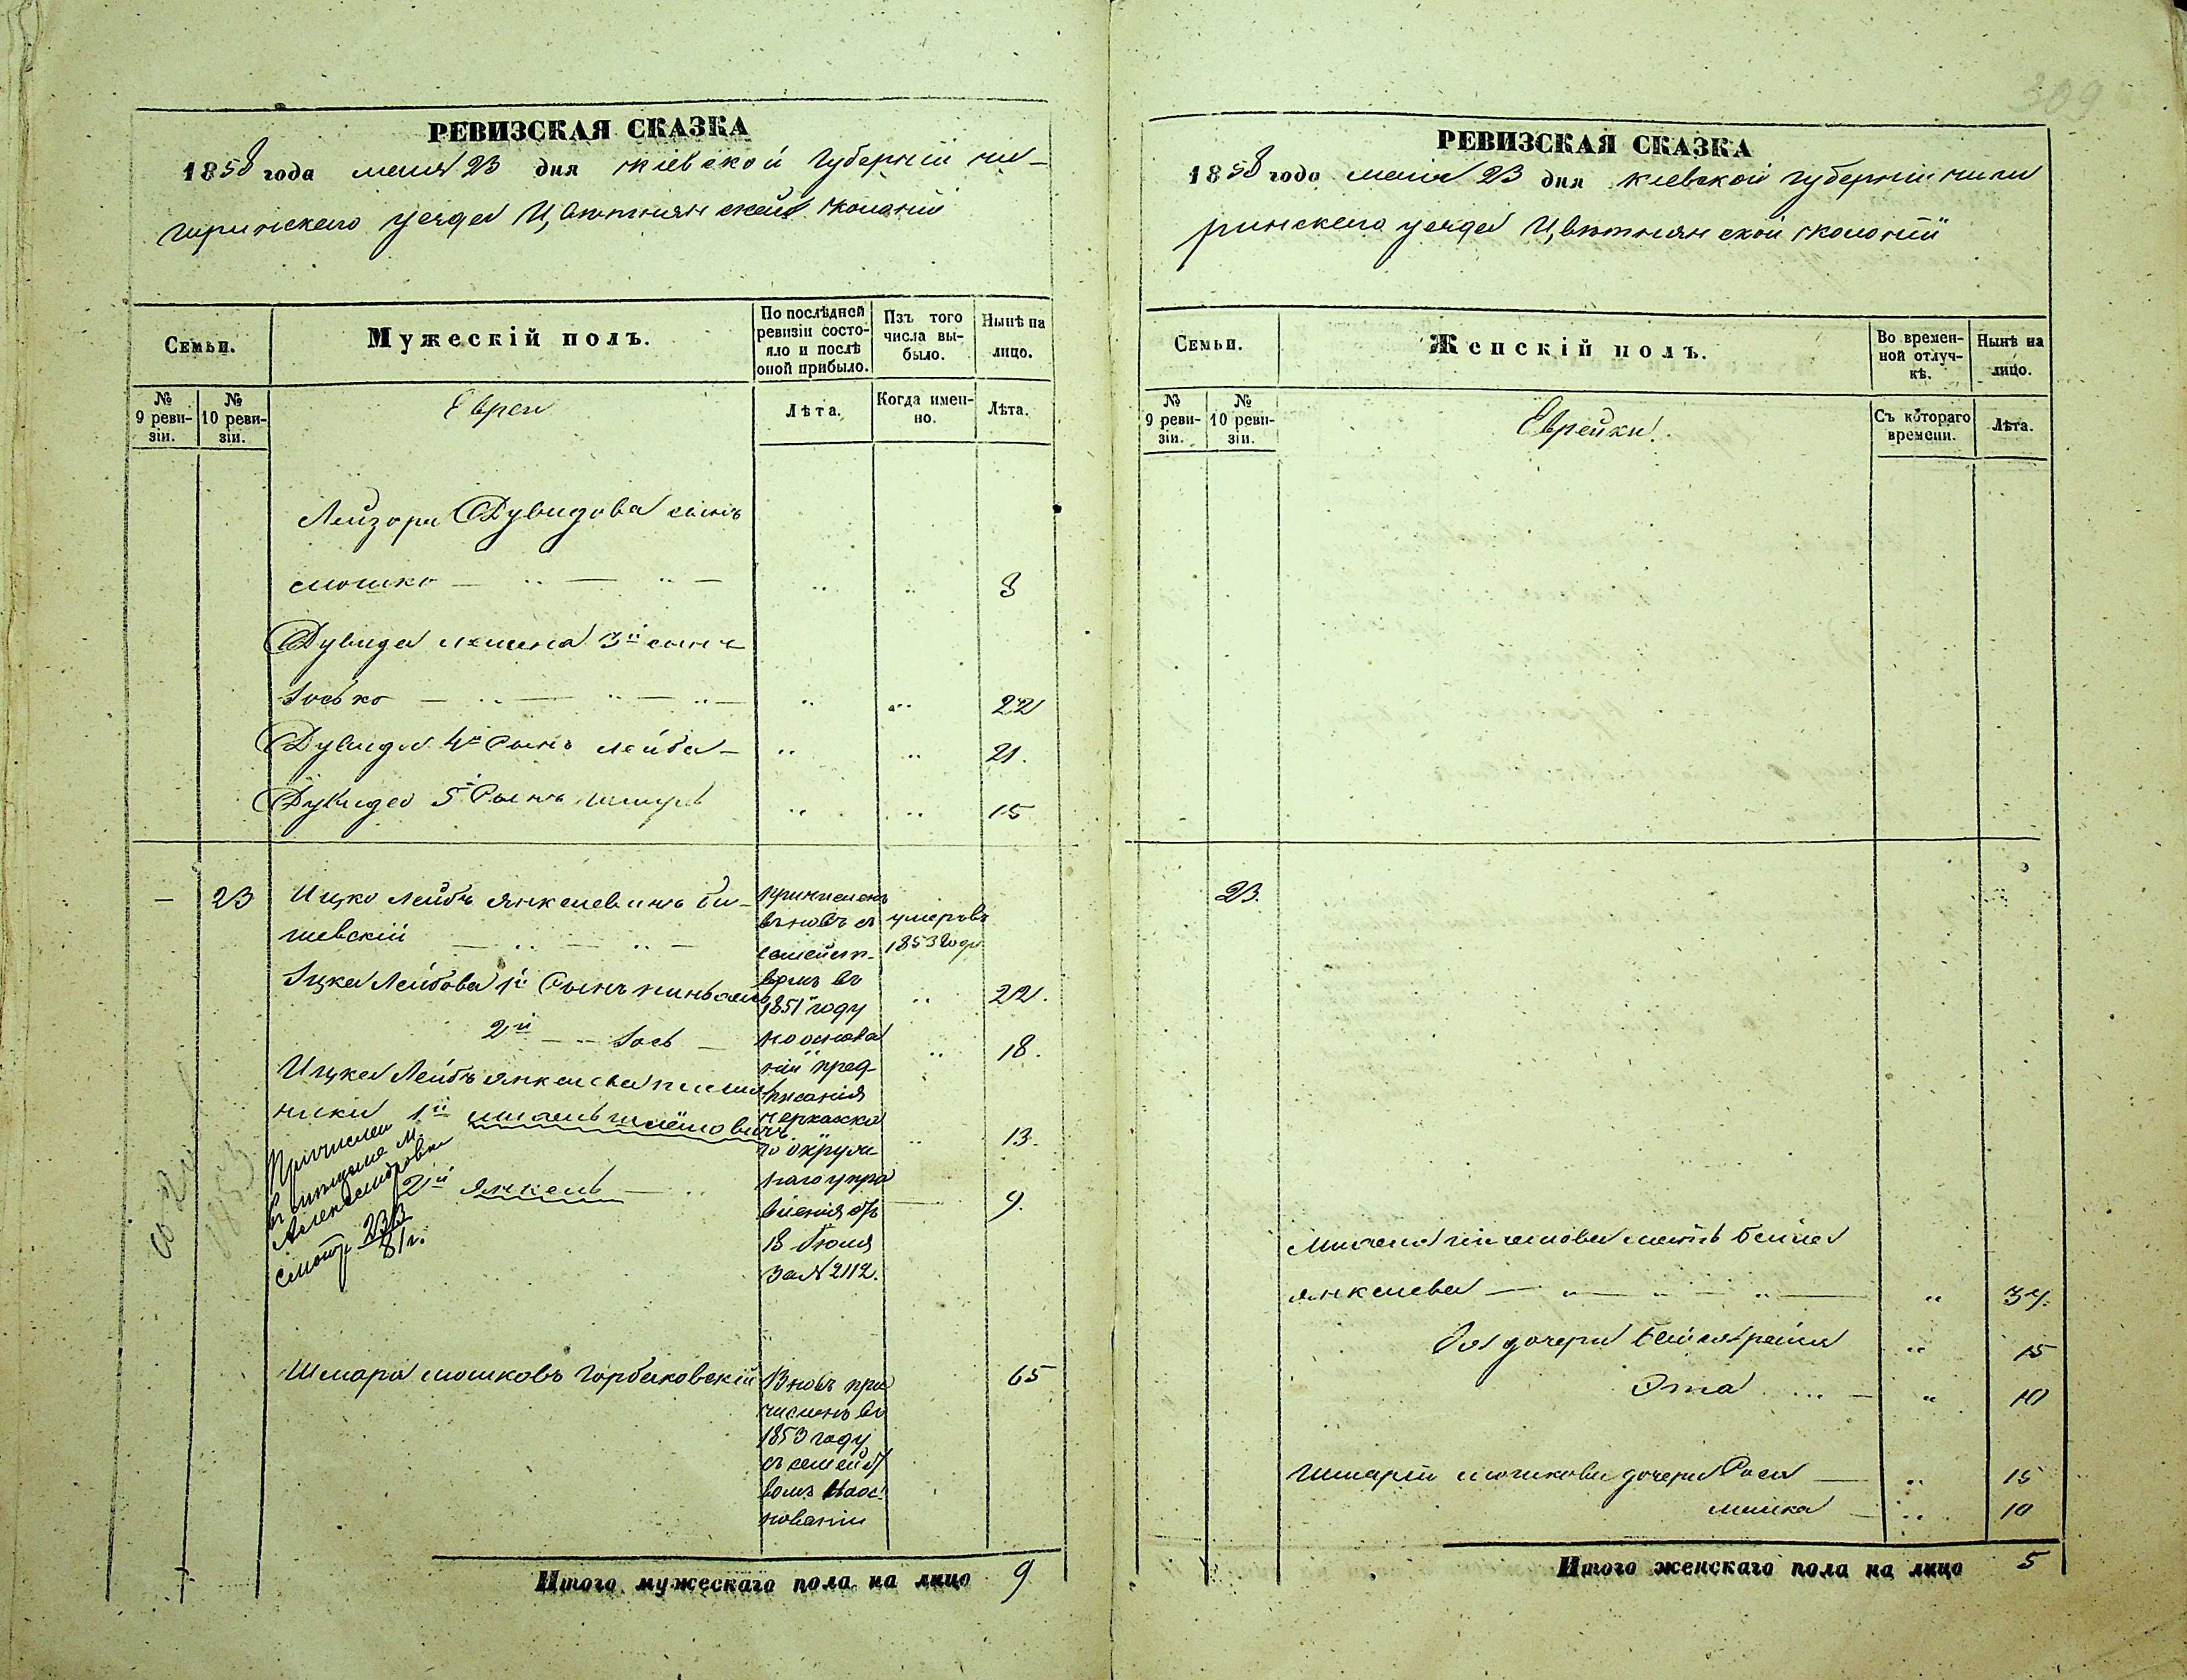 309
РЕВИЗСКАЯ СКАЗКА
1858 года мая 23 дня Кіевской губерніи чи-
гиринскаго уезда Цвѣтнянской колоніи
Семьи.
Мужескій полъ.
По послѣдней ревизіи состояло и послѣ оной прибыло.
Изъ того числа выбыло.
Нынѣ на лицо.
№ 9 ревизіи.
№ 10 ревизіи.
Евреи
Лѣта.
Когда именно.
Лѣта.
Лейзора Дувидова сынъ
мошко — .. — .. — .. .. 3
Дувида 3й сынъ
Iосько — .. — .. — .. — .. .. 22
Дувида 4й Сынъ лейба — .. .. 21.
Дувида 5й Сынъ .. .. 15
— 23 Ицко Лейбъ янкелевичъ би-
шевскій — .. — .. —
причисленъ
вновь съ
семейст-
вомъ въ
1851 году
по основа
ніи пред-
писанія
черкаска
го окружнаго
наго упра
вленія отъ
18 Iюля
За № 2112.
умеръ въ
1853 году
Iцка Лейбова 1й Сынъ пиньхась .. 22.
2й — .. Iось — .. 18.
Ицка Лейбъ янкелева племян
ники 1й шмёмовичъ .. 13.
2й янкель — .. 9.
Причислен
в мещане м.
Александровки
смотр 233
81 г.
1853
Шмара мошковъ Горбаковскій 65
Вновь при
численъ въ
1853 году
съ семейст
вомъ На ос-
нованіи
Итого мужескаго пола на лицо 9
РЕВИЗСКАЯ СКАЗКА
1858 года маія 23 дня кіевской губерніи чиги
ринскаго уезда Цвѣтнянской колоніи
Семьи.
Женскій полъ.
Во временной отлучкѣ.
Нынѣ на лицо.
№ 9 ревизіи.
№ 10 ревизіи.
Еврейки.
Съ котораго времени.
Лѣта.
23.
мать бейла
янкелева — .. .. — .. — .. 34.
Ея дочери бейла рейза .. 15
Эта ... — .. 10
Шмаріи мошкова дочери Рося — .. 15
малка — .. 10
Итого женскаго пола на лицо 5